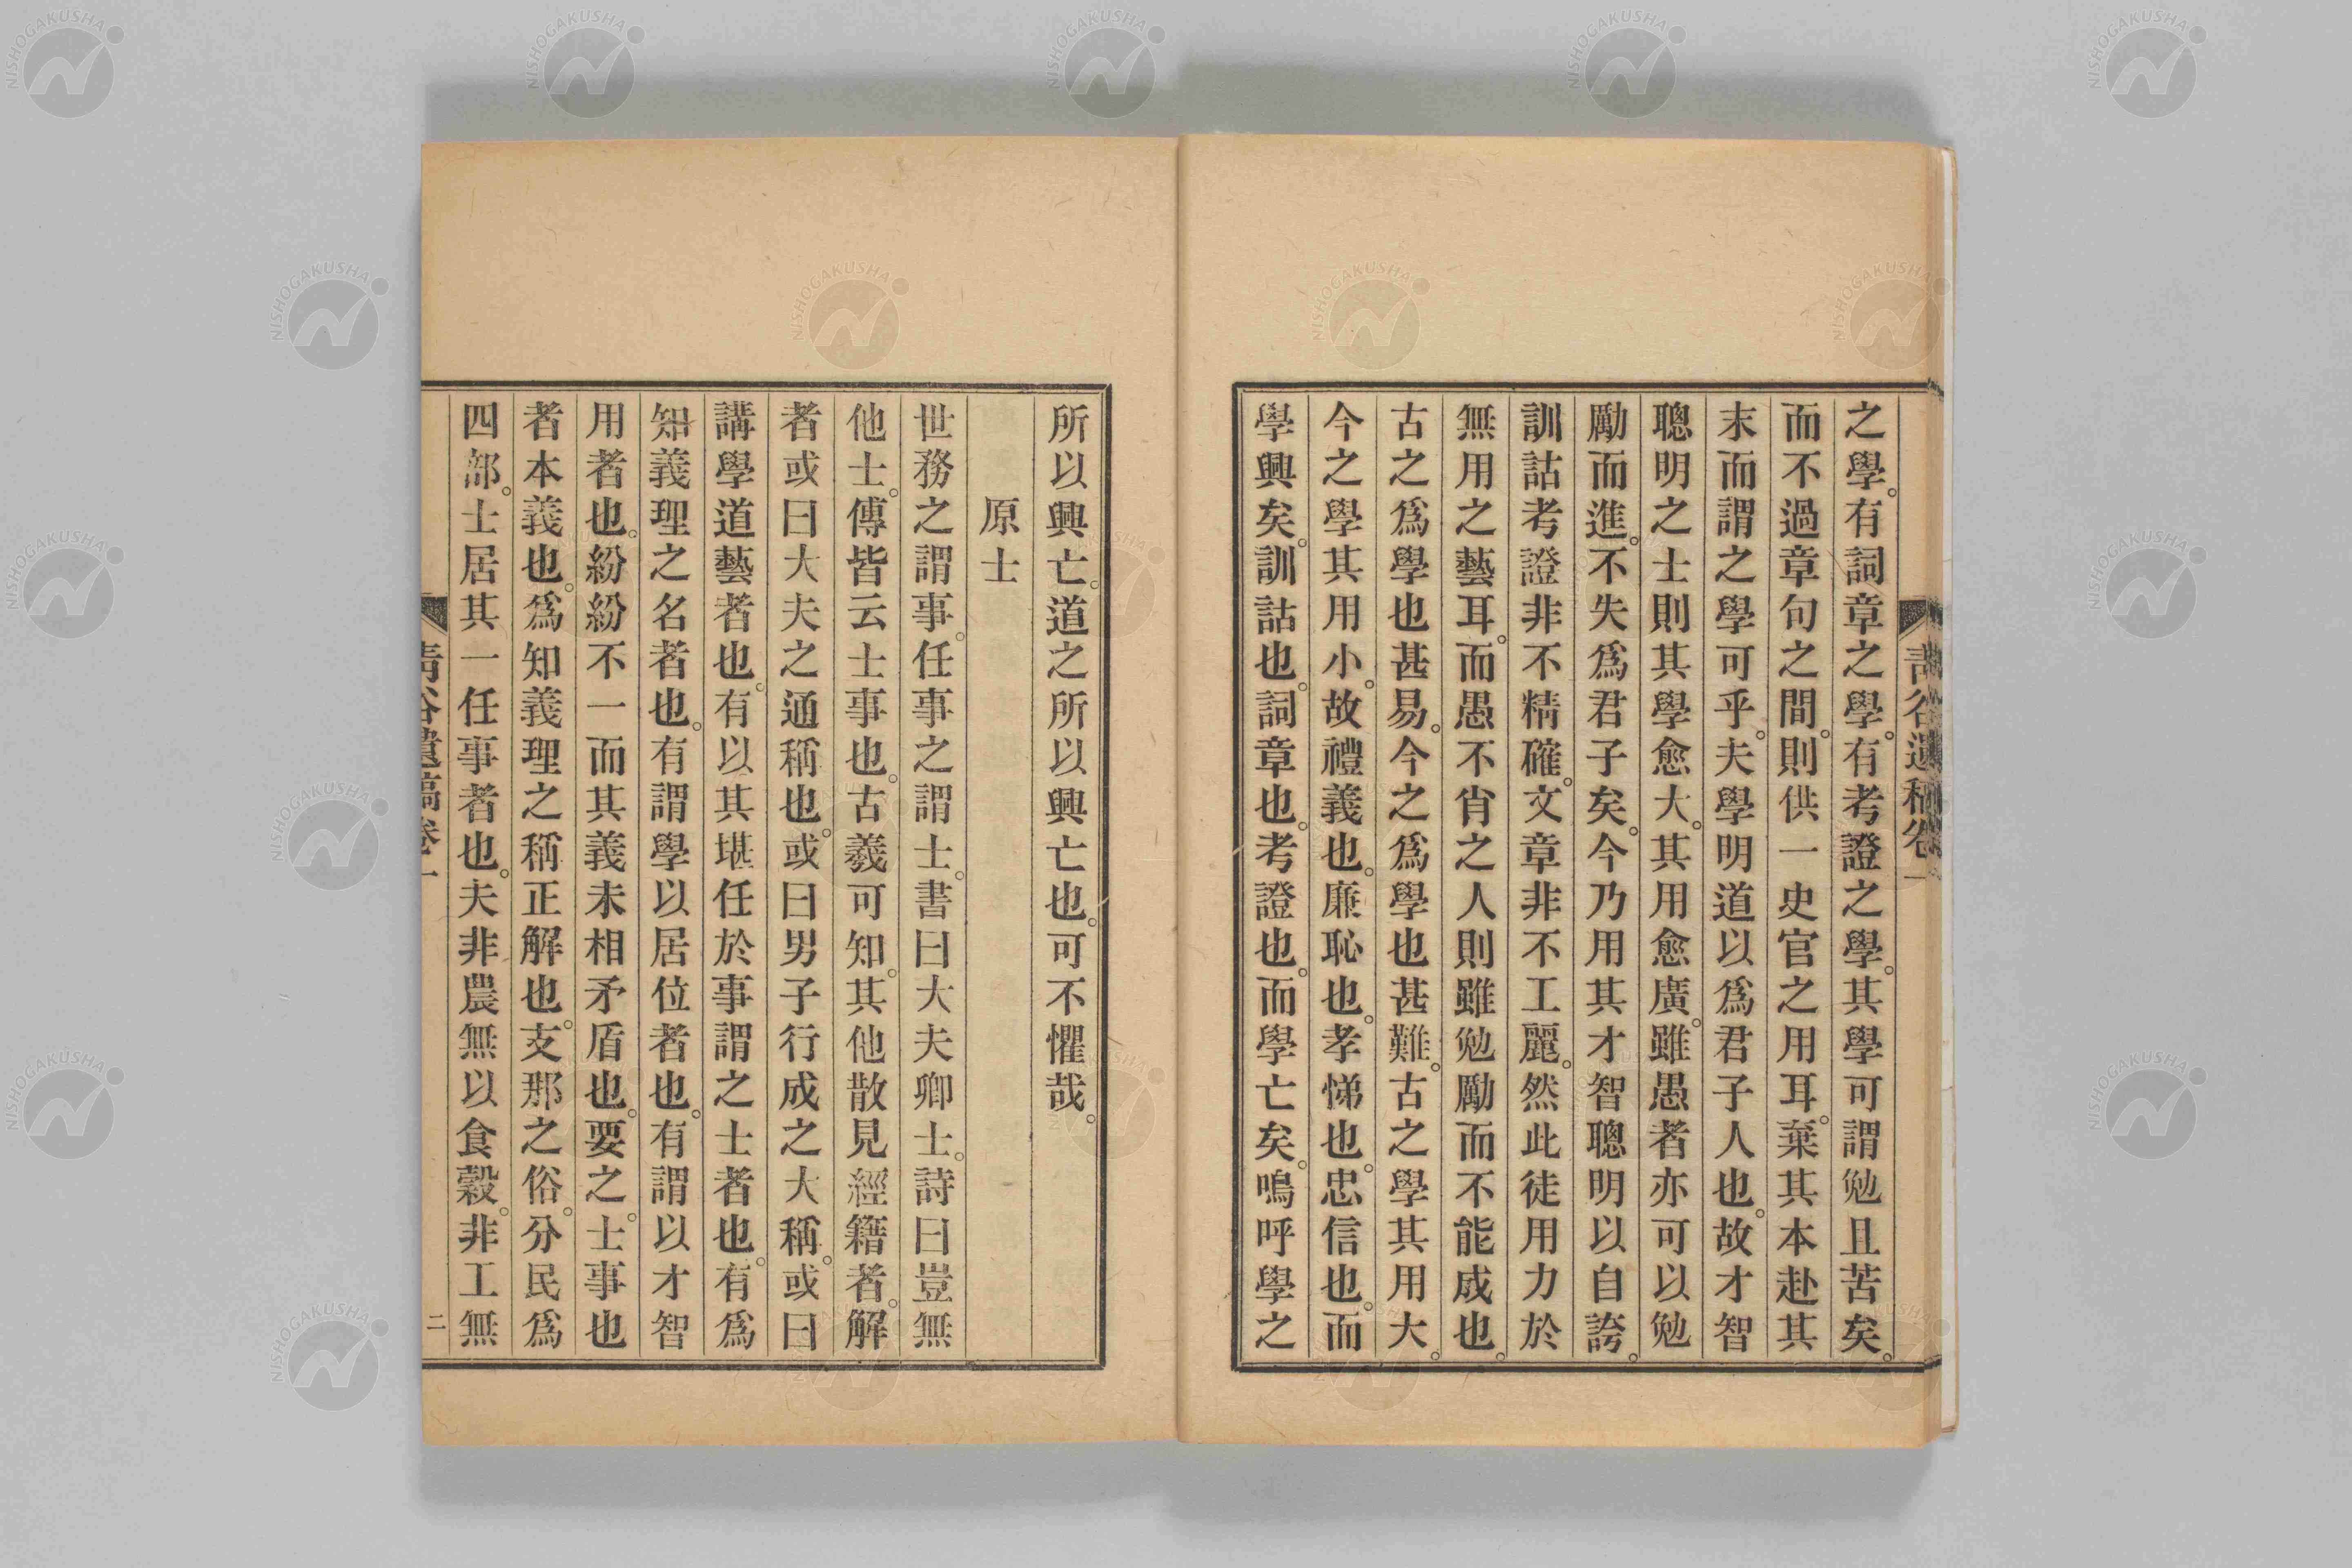 之學。有詞章之學。有考證之學。其學可謂勉且苦矣。
而不過章句之間。則供一史官之用耳。棄其本赴其
末而謂之學可乎。夫學明道以爲君子人也。故才智
聰明之士則其學愈大。其用愈廣。雖愚者亦可以勉
勵而進。不失爲君子矣。今乃用其才智聰明以自誇。
訓詁考證非不精確。文章非不工麗。然此徒用力於
無用之藝耳。而愚不肖之人則雖勉勵而不能成也。
古之爲學也甚易。今之爲學也甚難。古之學其用大。
今之學其用小。故禮義也。廉恥也。孝悌也。忠信也。而
學興矣。訓詁也。詞章也。考證也。而學亡矣。鳴呼學之
所以興亡。道之所以興亡也。可不懼哉。
原士
世務之謂事。任事之謂士。書曰大夫卿士。詩曰豈無
他士。傳皆云士事也。古義可知。其他散見經籍者。解
者或曰大夫之通稱也。或曰男子行成之大稱。或曰
講學道藝者也。有以其堪任於事謂之士者也。有爲
知義理之名者也。有謂學以居位者也。有謂以才智
用者也。紛紛不一而其義未相矛盾也。要之。士事也
者本義也。爲知義理之稱正解也。支那之俗。分民爲
四部。士居其一任事者也。夫非農無以食穀。非工無
二
NISHOGAKUSHA